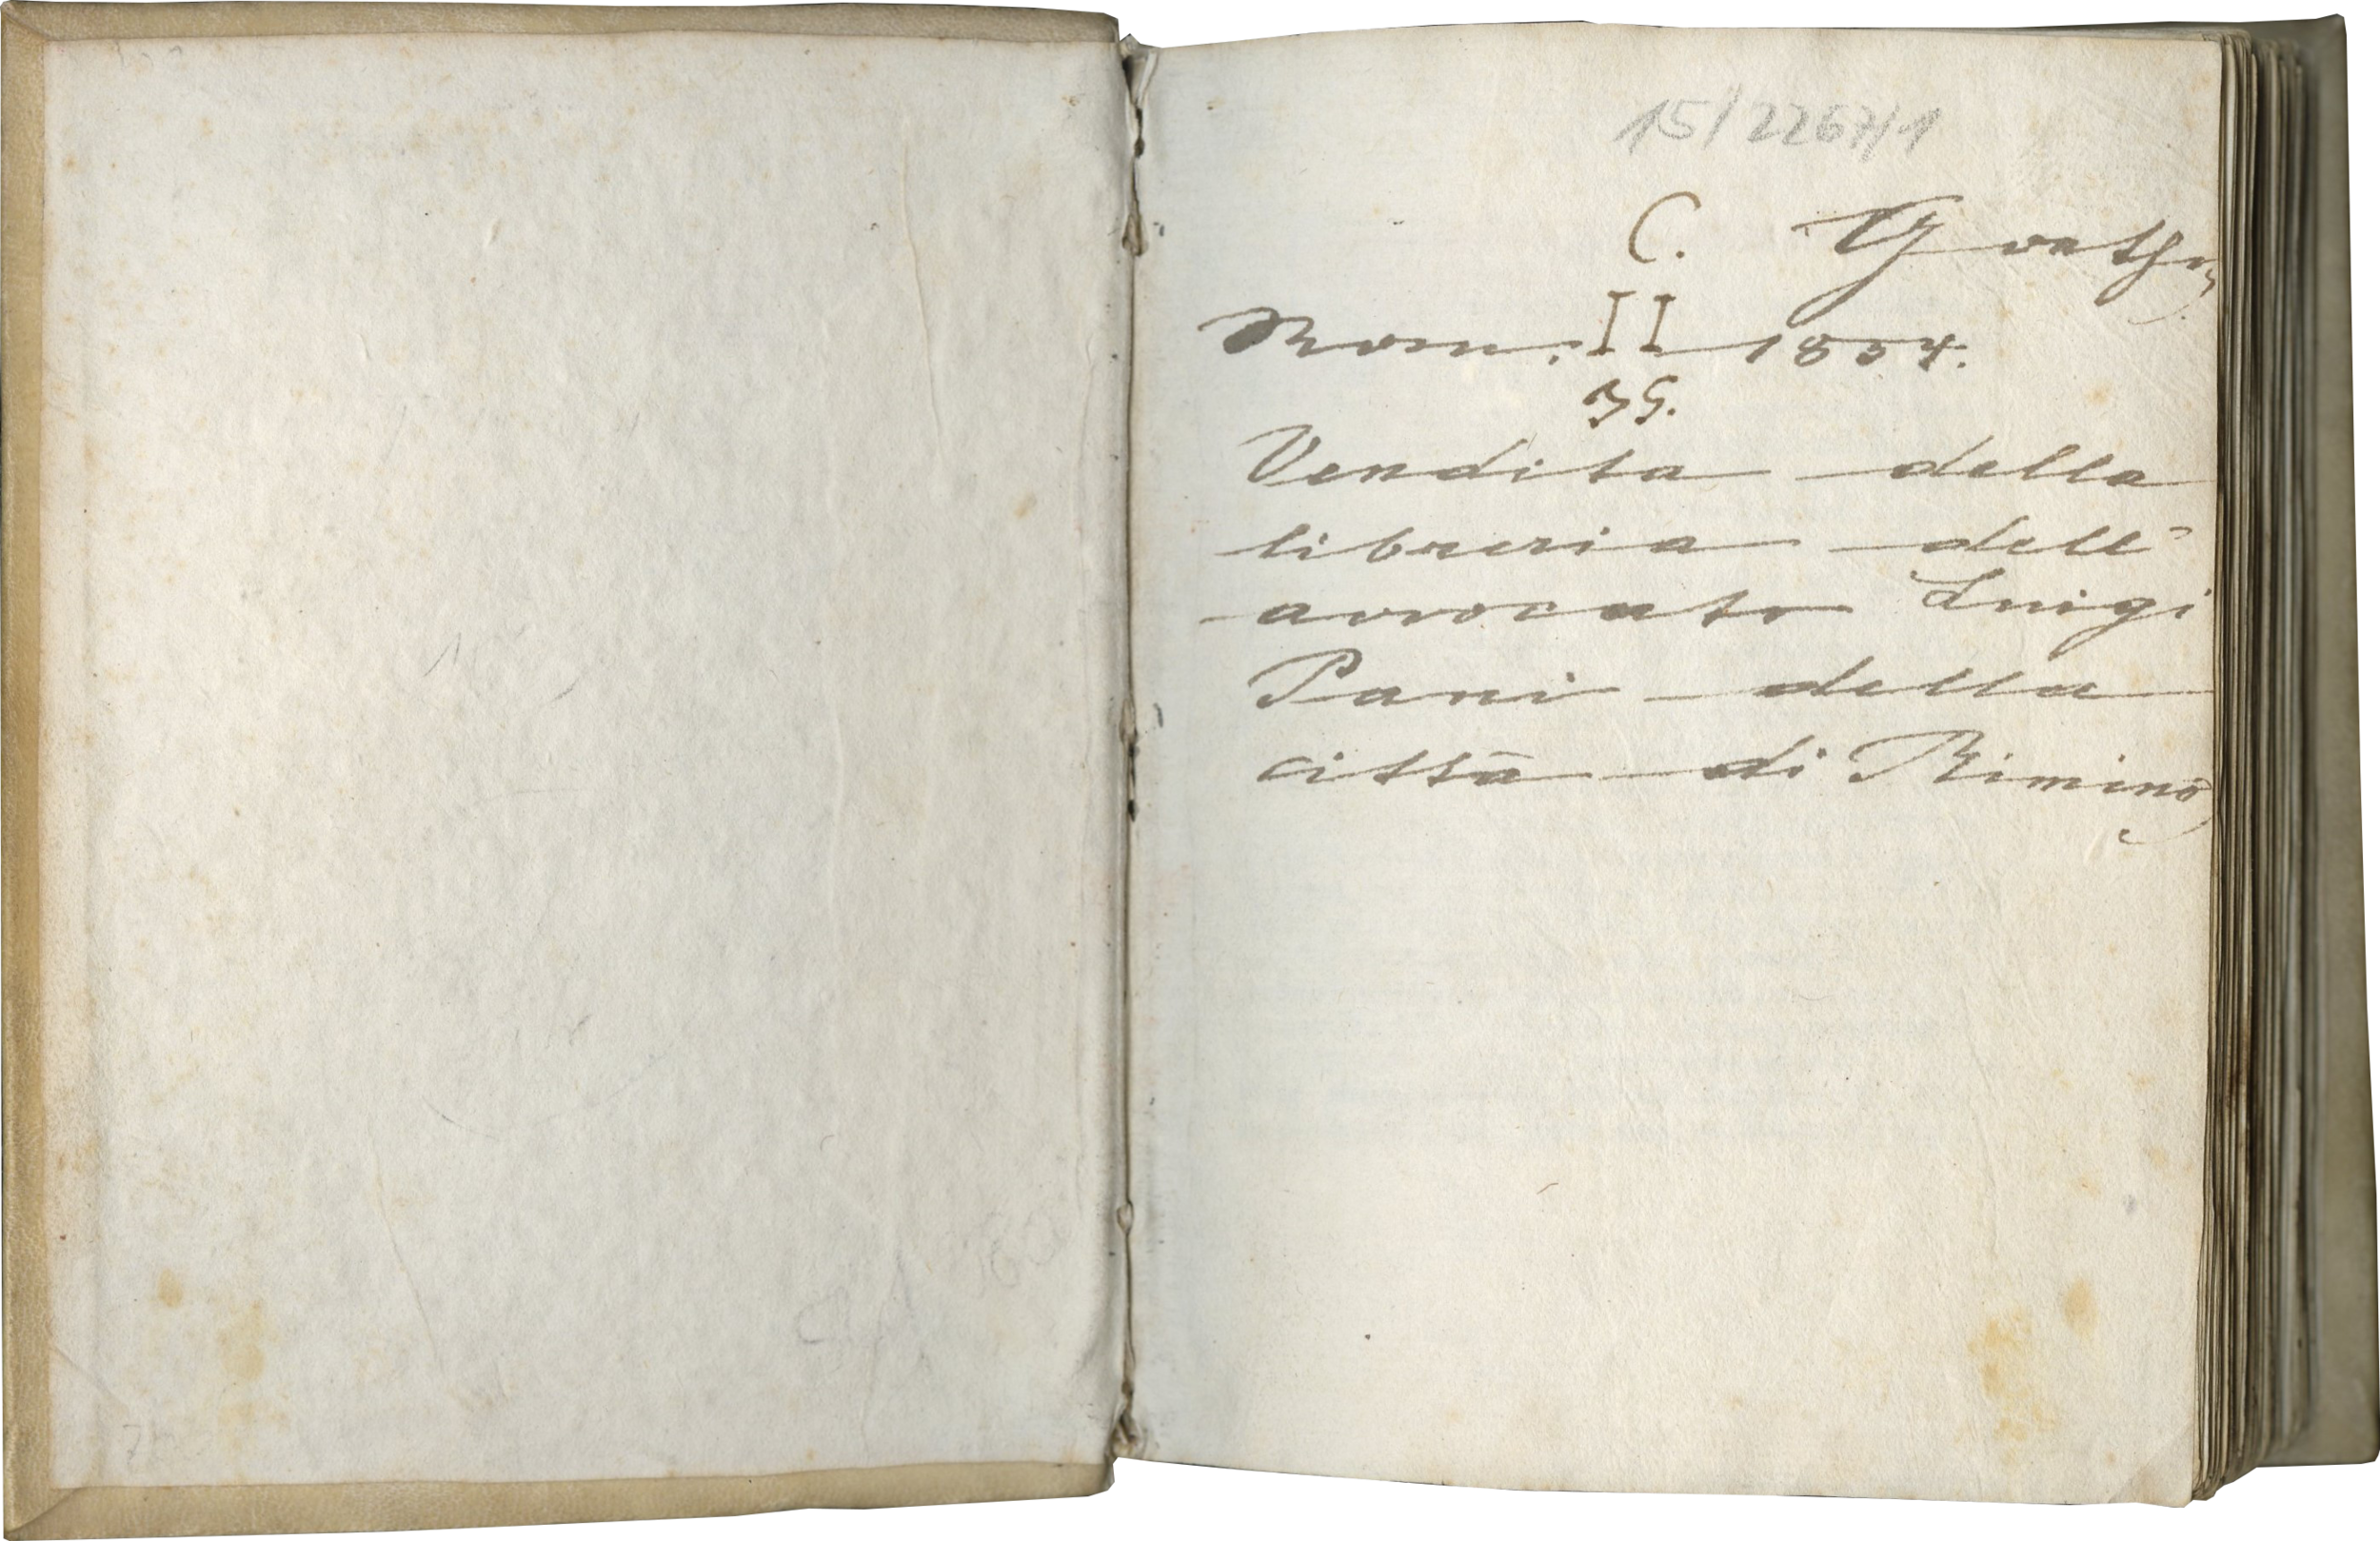 15/2267/1
C. Goethe
Rom. II 1834.
35.
Vendita della
libreria dell'
avvocato Luigi
Pani della
città di Rimino